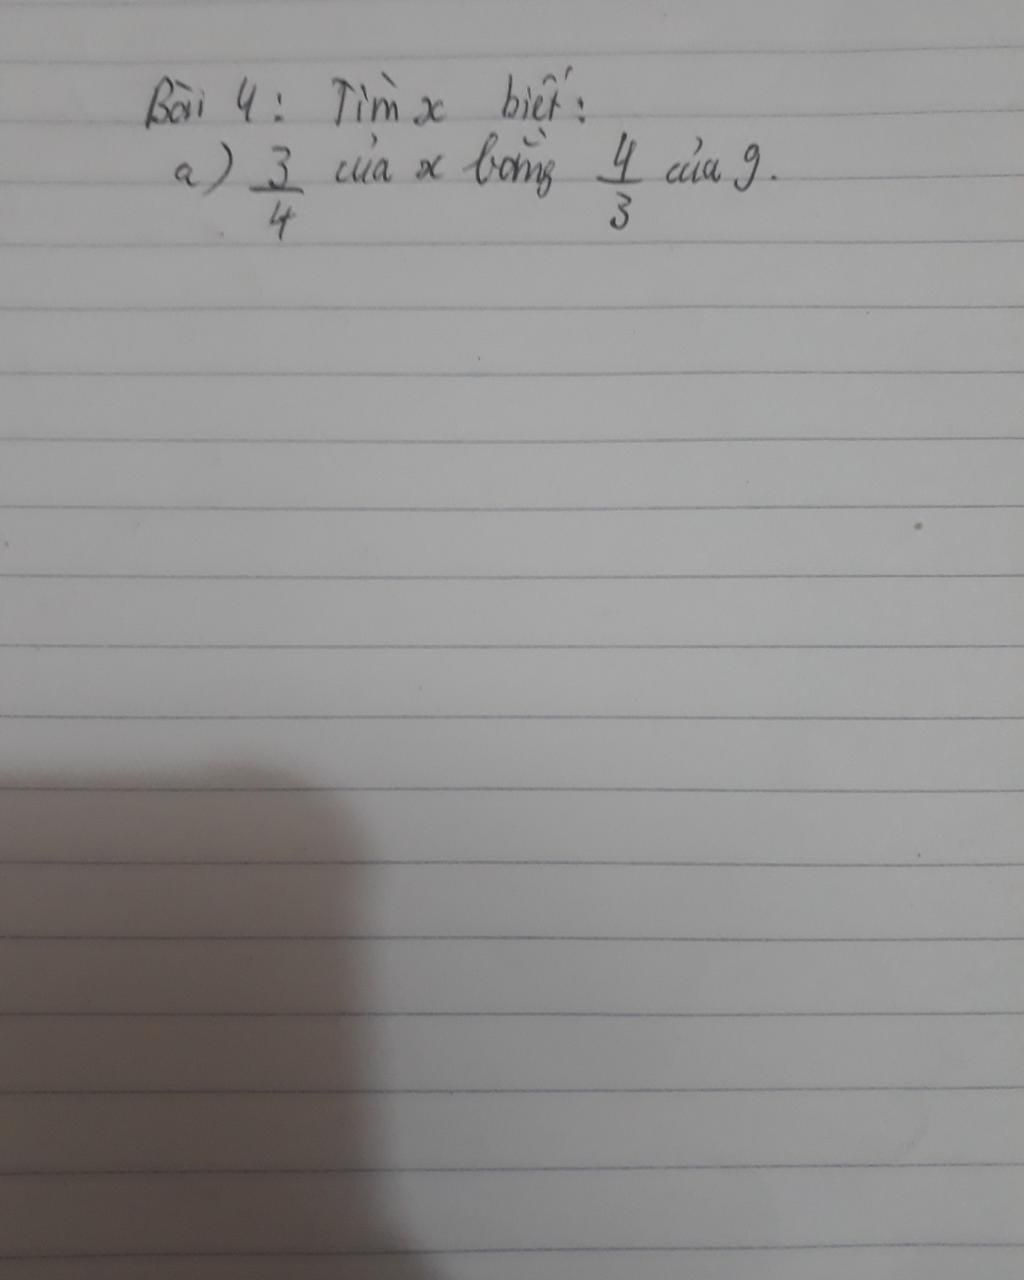 Bài 4: Tìm x biết:
a) 3/4 của x bằng 4/3 của 9.